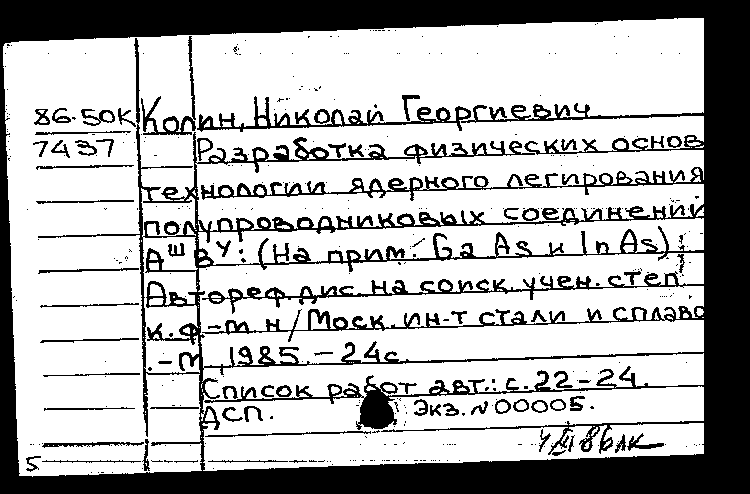 86-50К Колин, Николай Георгиевич
7437 Разработка физических основ
технологии ядерного легирования
полупроводниковых соединений
АᴵᴵᴵВⱽ: (На прим. Ga As и In As):
Автореф. дис. на соиск. учен. степ.
к. ф.-м. н/Моск. ин-т стали и сплаво
.-М, 1985.-24с.
Список работ авт.: с. 22-24.
ДСП. Экз. N 00005.
5